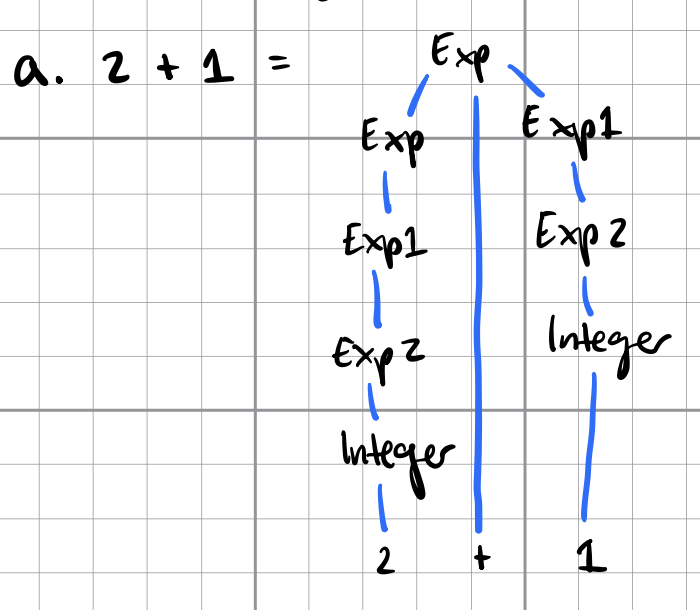 a. 2 + 1 = Exp
Exp Exp1
Exp1 Exp2
Exp2 Integer
Integer
2 + 1